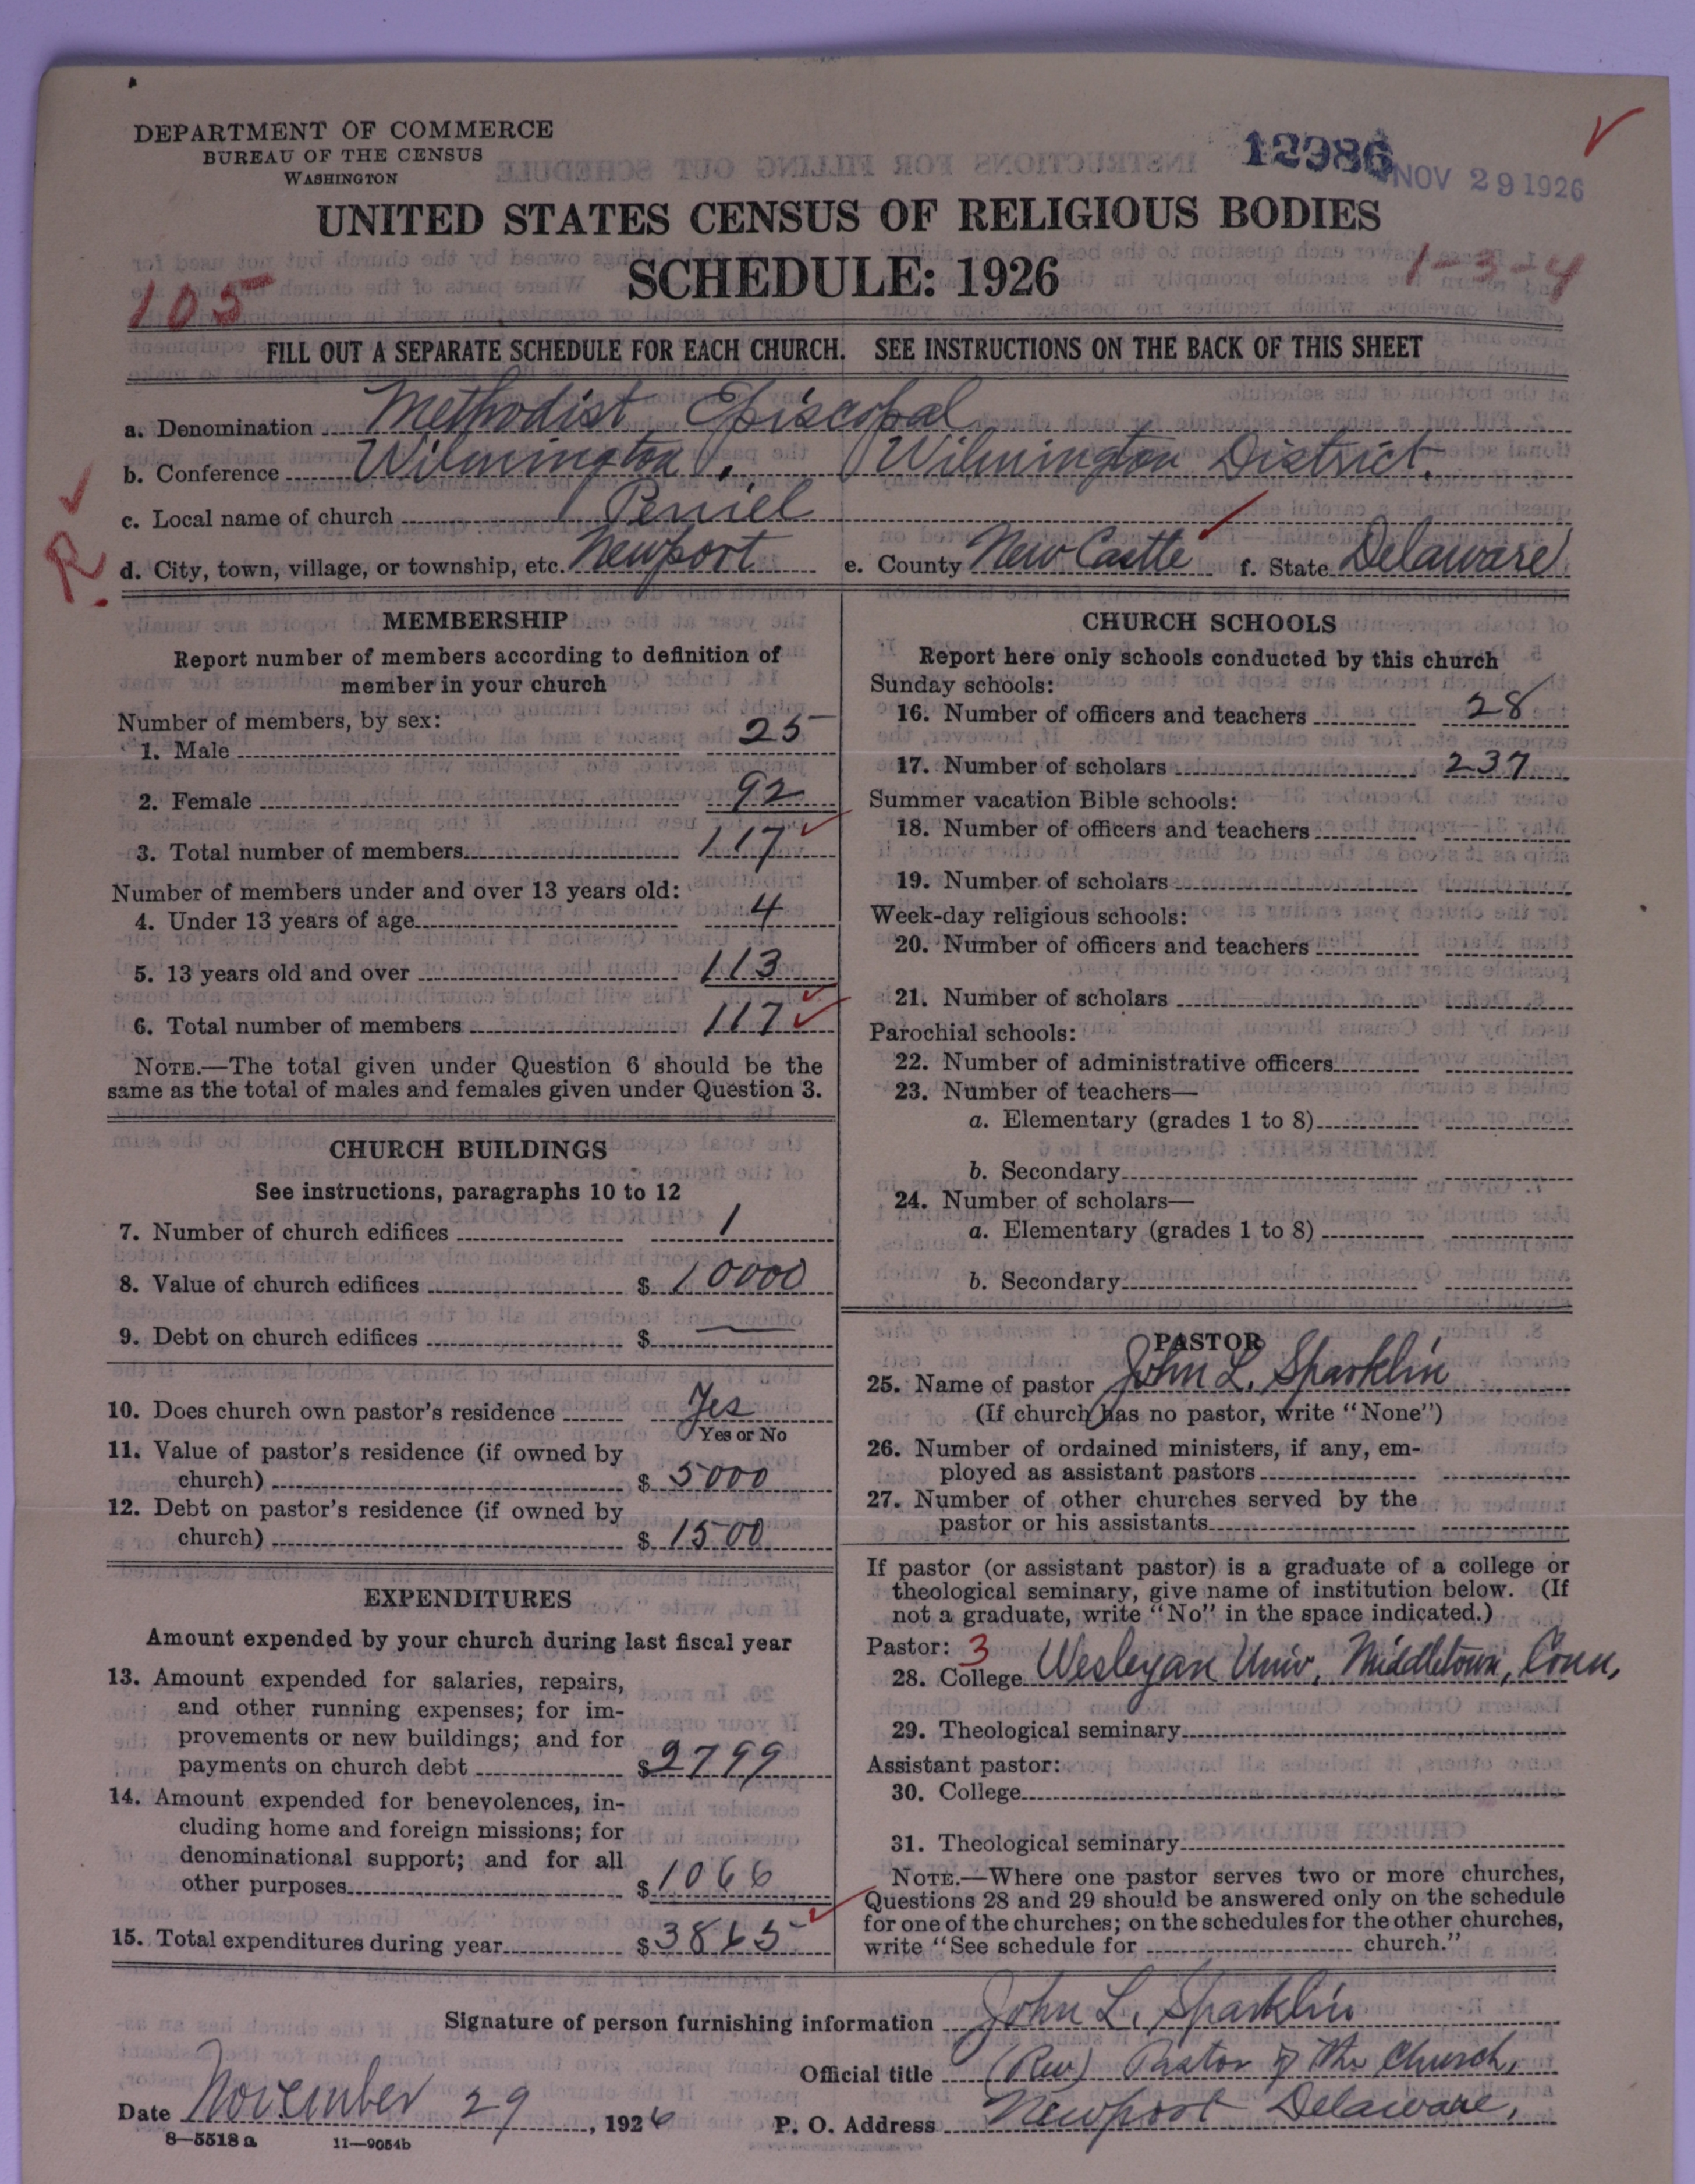 DEPARTMENT OF COMMERCE
BUREAU OF THE CENSUS
WASHINGTON
12986
NOV 29 1926
UNITED STATES CENSUS OF RELIGIOUS BODIES
SCHEDULE: 1926
105
1-3-4
FILL OUT A SEPARATE SCHEDULE FOR EACH CHURCH. SEE INSTRUCTIONS ON THE BACK OF THIS SHEET
a. Denomination Methodist Episcopal
b. Conference Wilmington, Wilmington District.
c. Local name of church Peniel
R
d. City, town, village, or township, etc. Newport e. County New Castle f. State Delaware
MEMBERSHIP
Report number of members according to definition of
member in your church
Number of members, by sex:
1. Male 25
2. Female 92
3. Total number of members 117
Number of members under and over 13 years old:
4. Under 13 years of age 4
5. 13 years old and over 113
6. Total number of members 117
NOTE.—The total given under Question 6 should be the
same as the total of males and females given under Question 3.
CHURCH BUILDINGS
See instructions, paragraphs 10 to 12
7. Number of church edifices 1
8. Value of church edifices $ 10000
9. Debt on church edifices $ —
10. Does church own pastor's residence Yes
Yes or No
11. Value of pastor's residence (if owned by
church) $ 5000
12. Debt on pastor's residence (if owned by
church) $ 1500
EXPENDITURES
Amount expended by your church during last fiscal year
13. Amount expended for salaries, repairs,
and other running expenses; for im-
provements or new buildings; and for
payments on church debt $ 2799
14. Amount expended for benevolences, in-
cluding home and foreign missions; for
denominational support; and for all
other purposes $ 1066
15. Total expenditures during year $ 3865
CHURCH SCHOOLS
Report here only schools conducted by this church
Sunday schools:
16. Number of officers and teachers 28
17. Number of scholars 237
Summer vacation Bible schools:
18. Number of officers and teachers
19. Number of scholars
Week-day religious schools:
20. Number of officers and teachers
21. Number of scholars
Parochial schools:
22. Number of administrative officers
23. Number of teachers—
a. Elementary (grades 1 to 8)
b. Secondary
24. Number of scholars—
a. Elementary (grades 1 to 8)
b. Secondary
PASTOR
25. Name of pastor John L. Sparklin
(If church has no pastor, write "None")
26. Number of ordained ministers, if any, em-
ployed as assistant pastors
27. Number of other churches served by the
pastor or his assistants
If pastor (or assistant pastor) is a graduate of a college or
theological seminary, give name of institution below. (If
not a graduate, write "No" in the space indicated.)
Pastor: 3
28. College Wesleyan Univ, Middletown, Conn,
29. Theological seminary
Assistant pastor:
30. College
31. Theological seminary
NOTE.—Where one pastor serves two or more churches,
Questions 28 and 29 should be answered only on the schedule
for one of the churches; on the schedules for the other churches,
write "See schedule for church."
Signature of person furnishing information John L. Sparklin
Official title (Rev) Pastor of the Church,
Date November 29, 1926 P. O. Address Newport Delaware,
8—5518a 11—9054b